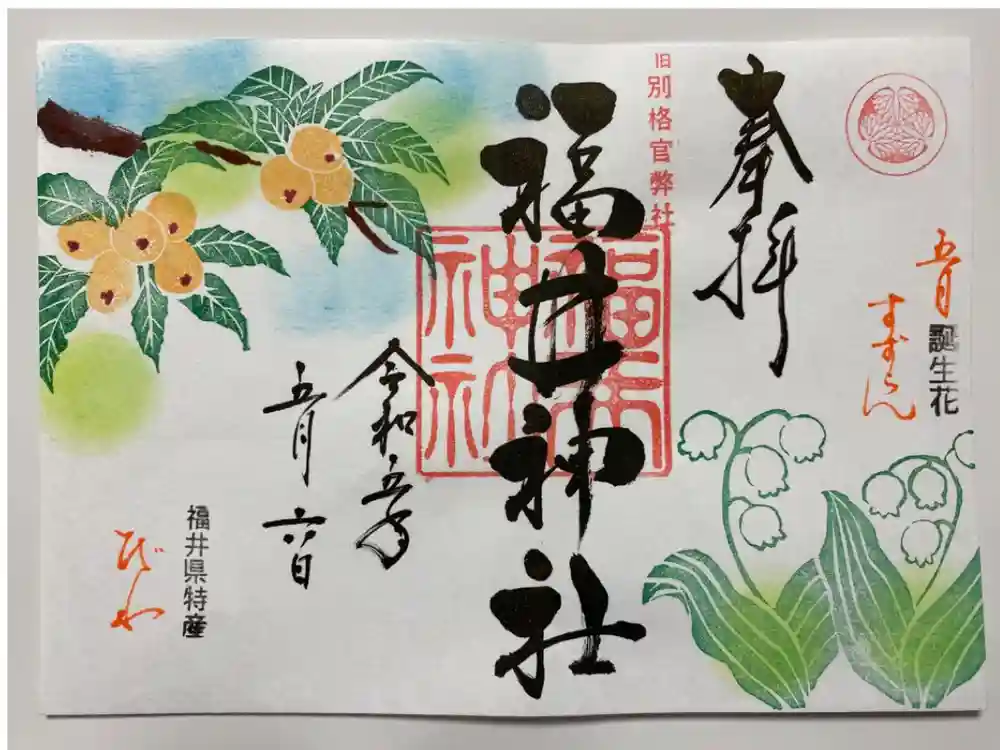 五月
誕生花
すずらん
奉拝
旧別格官幣社
福井神社
福井神社
令和五年
五月六日
福井県特産
びわ